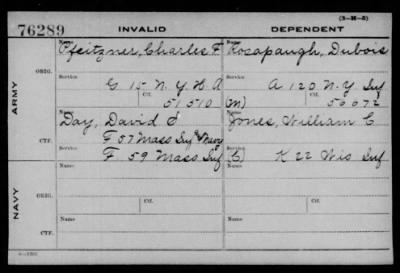 (3-H-6)
76289 INVALID DEPENDENT
Name Name
Pfeitzner, Charles F Rosapaugh, Dubois
ARMY
ORIG.
Service Service
G 15 N.Y.H.A A 120 N.Y. Inf
Ctf. Ctf.
51510 (M) 56672
Name Name
Day, David S Jones, William C
CTF.
Service Service
F 57 Mass Inf & Navy
F 59 Mass Inf (C) K 22 Wis Inf
NAVY
ORIG.
Name Ctf. Name Ctf.
CTF.
Name Name